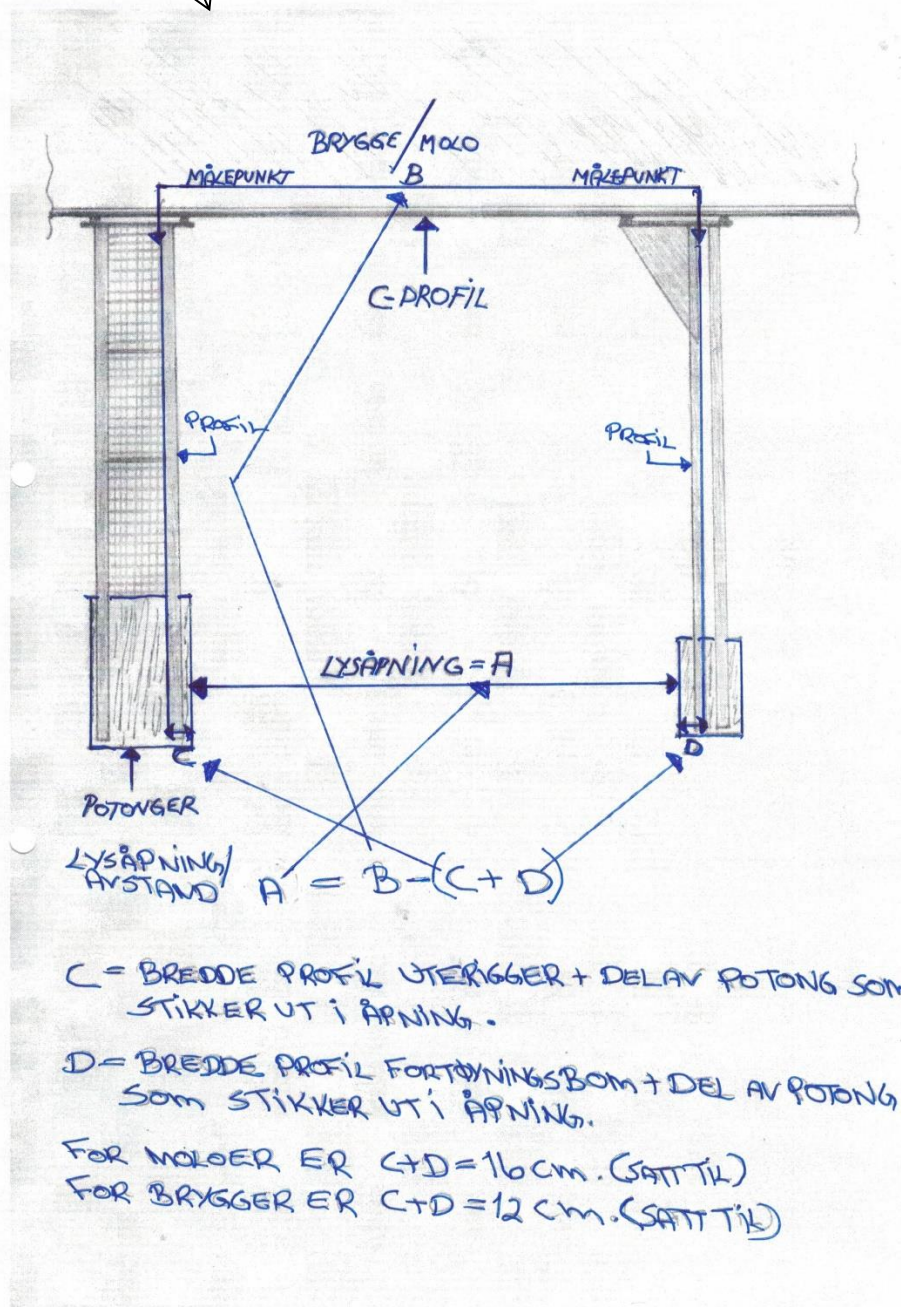 BRYGGE/MOLO
MÅLEPUNKT B MÅLEPUNKT
C-PROFIL
PROFIL PROFIL
LYSÅPNING = A
C D
POTONGER
LYSÅPNING/
AVSTAND A = B-(C + D)
C = BREDDE PROFIL UTERIGGER + DEL AV POTONG SOM
STIKKER UT I ÅPNING.
D = BREDDE PROFIL FORTØYNINGSBOM + DEL AV POTONG
SOM STIKKER UT I ÅPNING.
FOR MOLOER ER C+D = 16 cm. (SATT TIL)
FOR BRYGGER ER C+D = 12 cm. (SATT TIL)